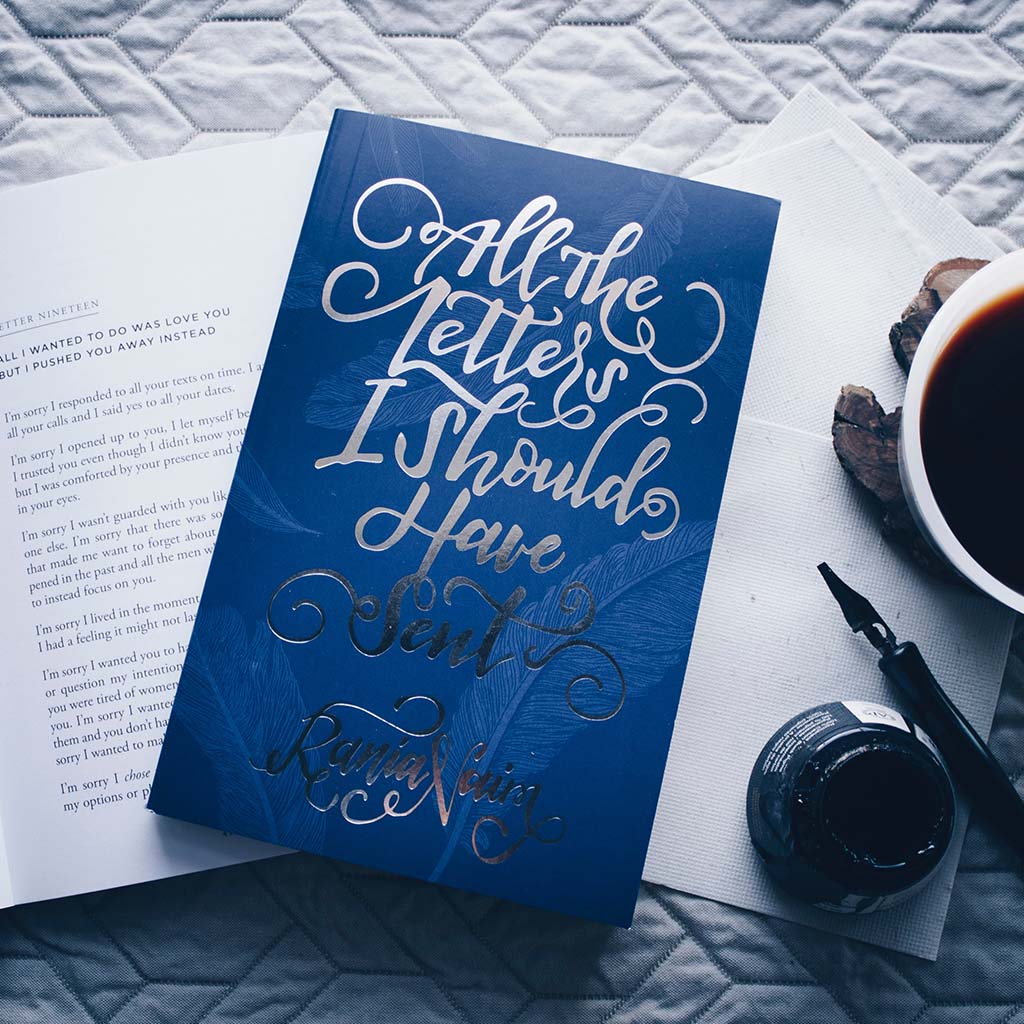 ETTER NINETEEN
ALL I WANTED TO DO WAS LOVE YOU
BUT I PUSHED YOU AWAY INSTEAD
I'm sorry I responded to all your texts on time. I
all your calls and I said yes to all your dates.
I'm sorry I opened up to you, I let myself be
I trusted you even though I didn't know you
but I was comforted by your presence and
in your eyes.
I'm sorry I wasn't guarded with you
one else. I'm sorry that there was
that made me want to forget about
pened in the past and all the men
to instead focus on you.
I'm sorry I lived in the moment
I had a feeling it might not
I'm sorry I wanted you to
or question my
you were tired of women
you. I'm sorry I
them and you don't
sorry I wanted to
I'm sorry I chose
my options or
All the
Letters
I Should
Have
Sent
Rania Naim